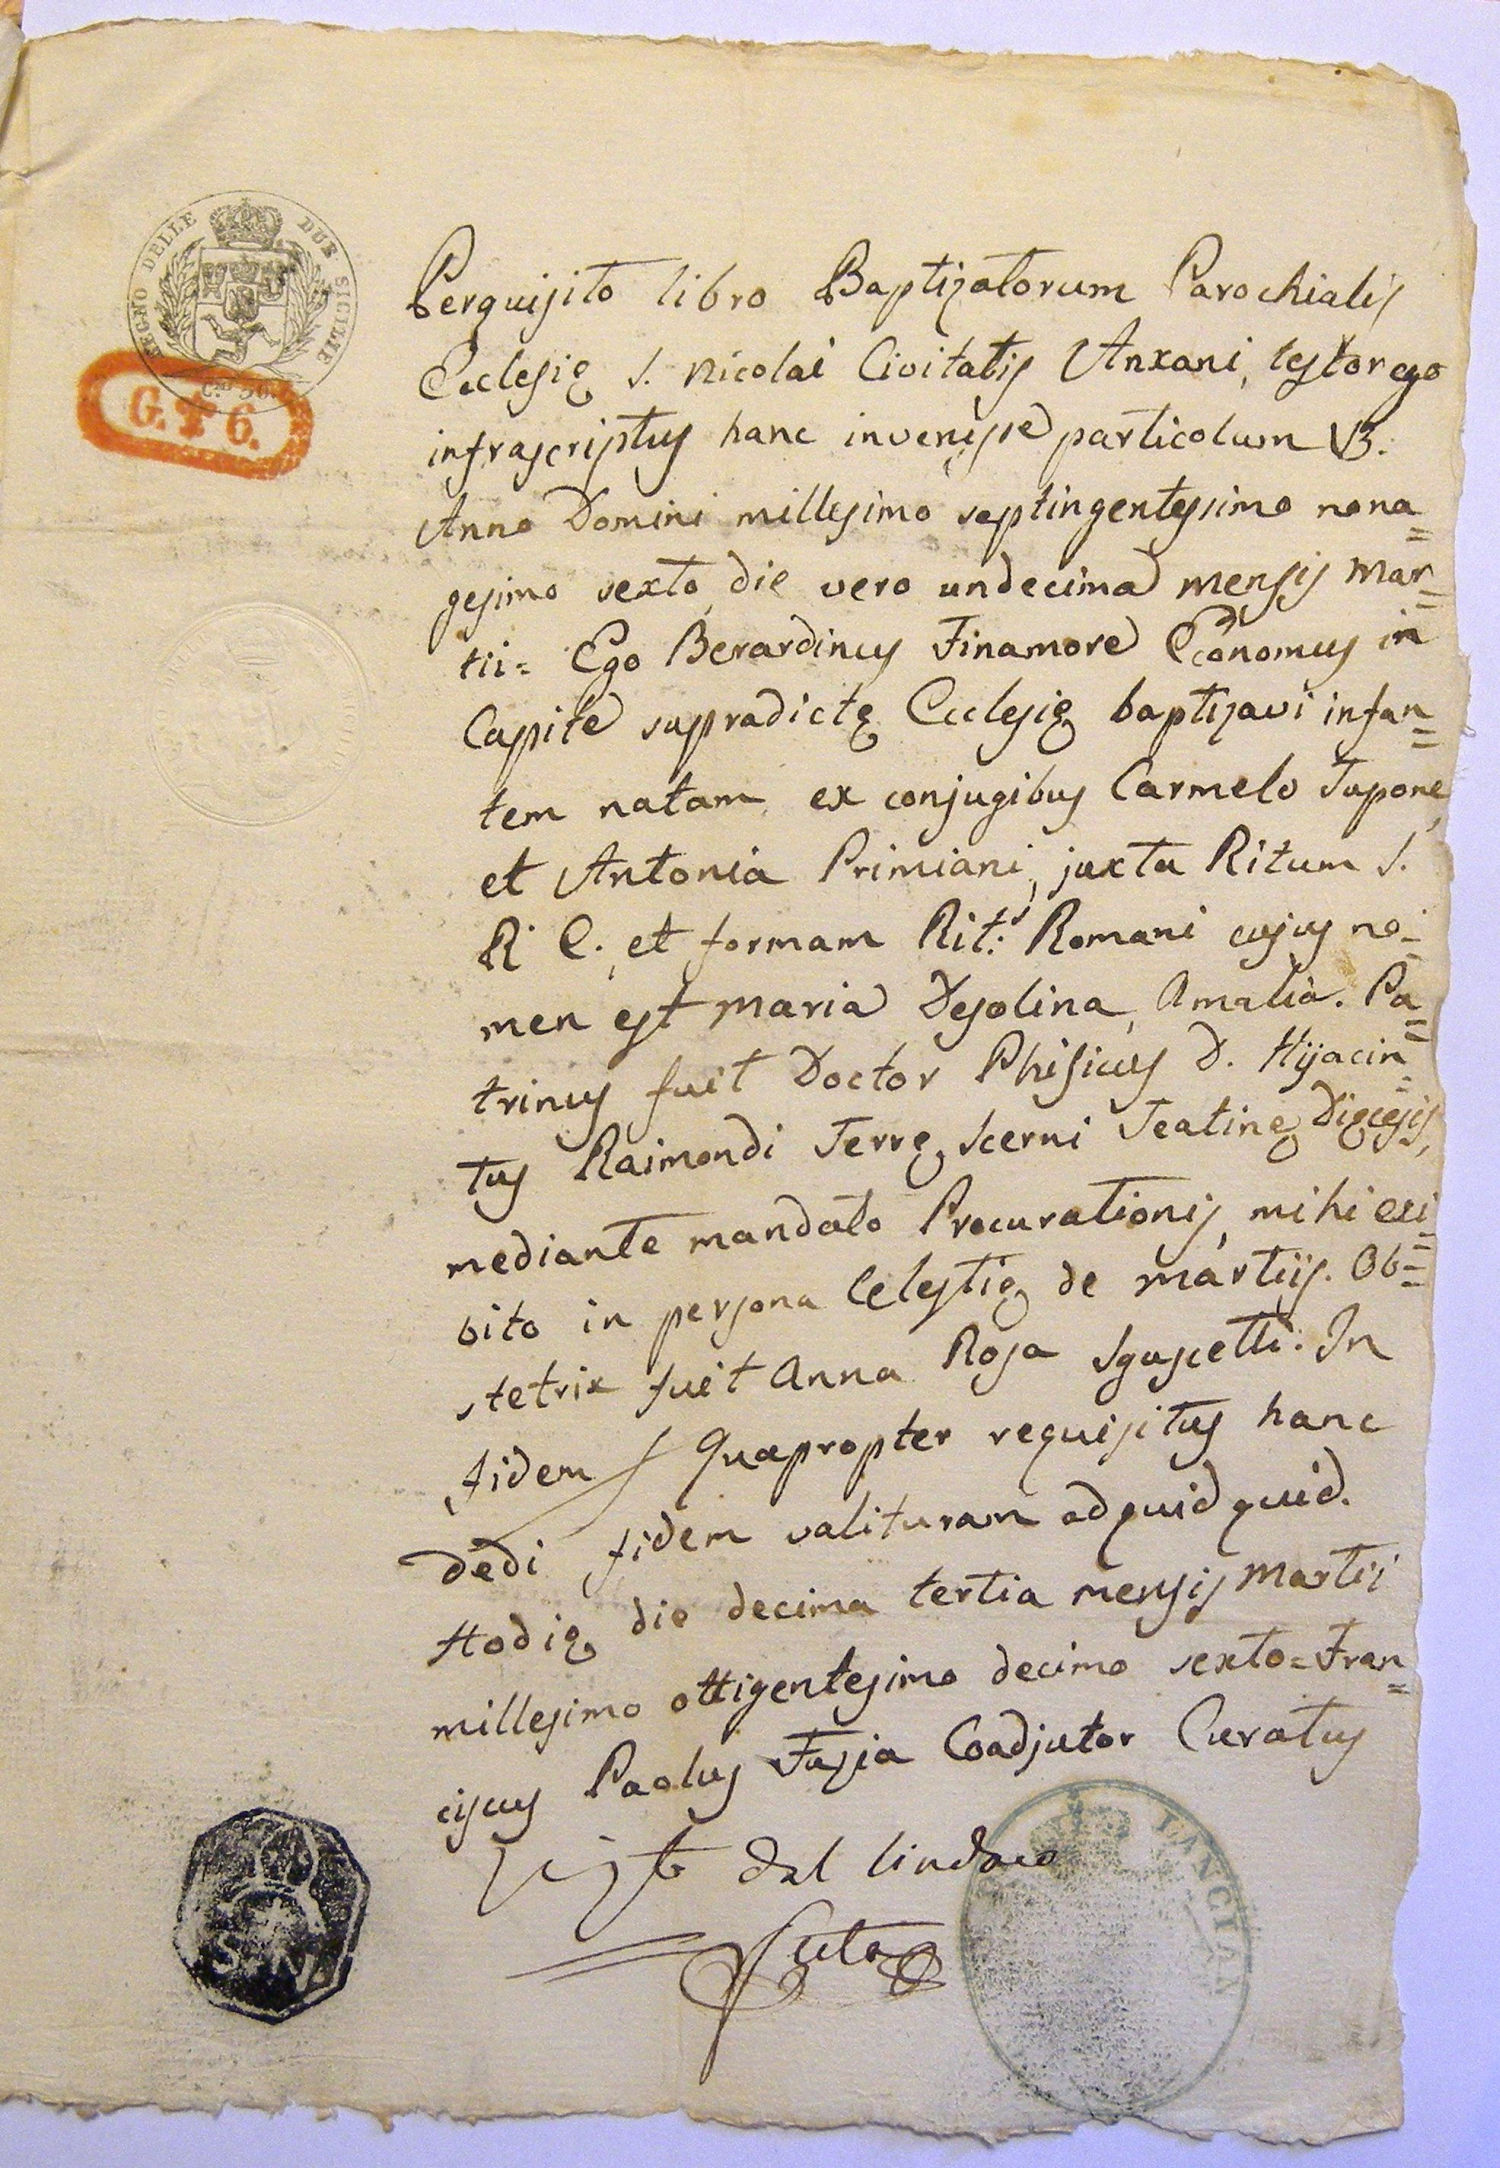 REGNO DELLE DUE SICILIE
G. T 6.
Perquisito libro Baptizatorum Parochialis
Ecclesię S. Nicolai Civitatis Anxani, testor ego
infrascriptus hanc invenisse particolum VB.
Anno Domini millesimo septingentesimo nona=
gesimo sexto, die vero undecima mensis Mar=
tii= Ego Berardinus Finamore Economus in
Capite supradictę Ecclesię baptizavi infan=
tem natam ex conjugibus Carmelo Tupone,
et Antonia Primiani, juxta Ritum S.
R. E., et formam Rit: Romani cujus no=
men est Maria Desolina, Amalia. Pa=
trinus fuit Doctor Phisicus D. Hijacin=
tus Raimondi Terrę Scerni Teatinę Dięcesis,
mediante mandato Procurationis, mihi exi=
bito in persona Celestię de Martiis. Ob=
stetrix fuit Anna Rosa . In
fidem Quapropter requisitus hanc
dedi fidem valituram ad quid quid.
Hodię die decima tertia mensis Martii
millesimo ottigentesimo decimo sexto= Fran=
ciscus Paolus Coadjutor Curatus
Visto dal Sindaco
LANCIAN
S. N.